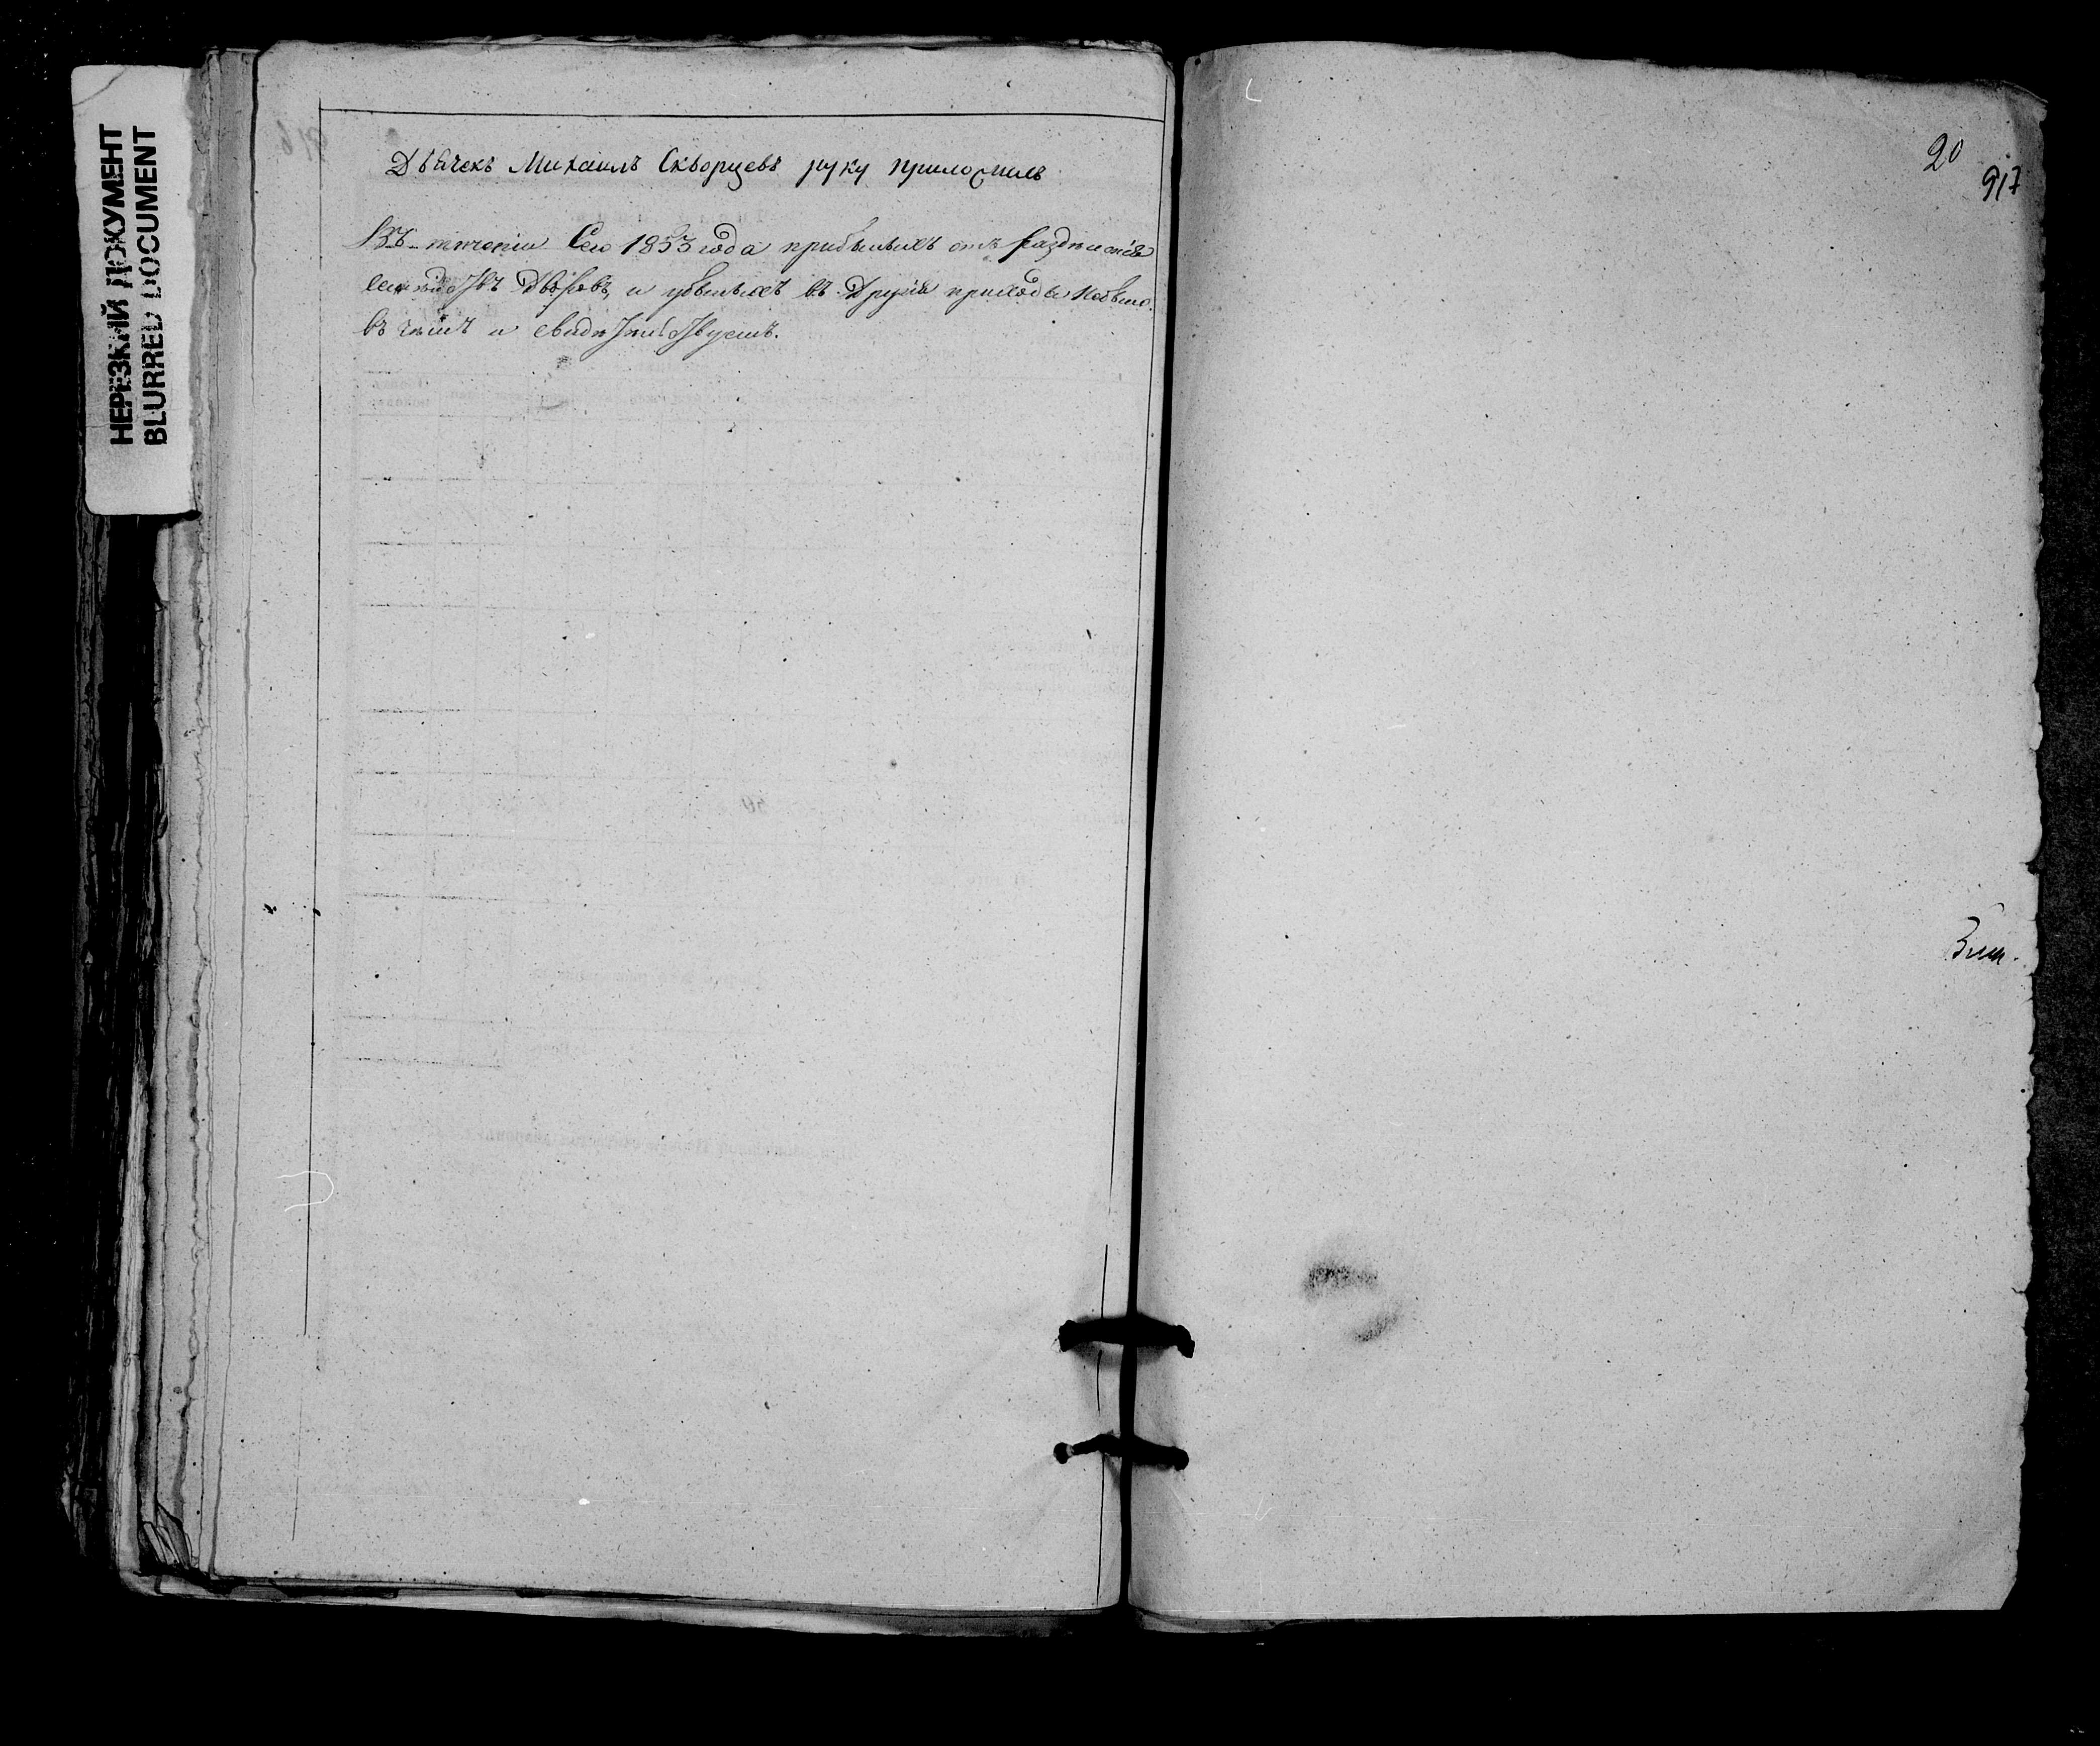 НЕРЕЗКИЙ ДОКУМЕНТ
BLURRED DOCUMENT
Дьячекъ Михаилъ Скворцевъ руку приложилъ
Въ теченіи Сего 1853 года прибылыхъ отъ раздѣленія
семействъ Дворовъ, и убылыхъ въ Другія приходы небыло.
въ чемъ и свидѣтельствуемъ.
20
917